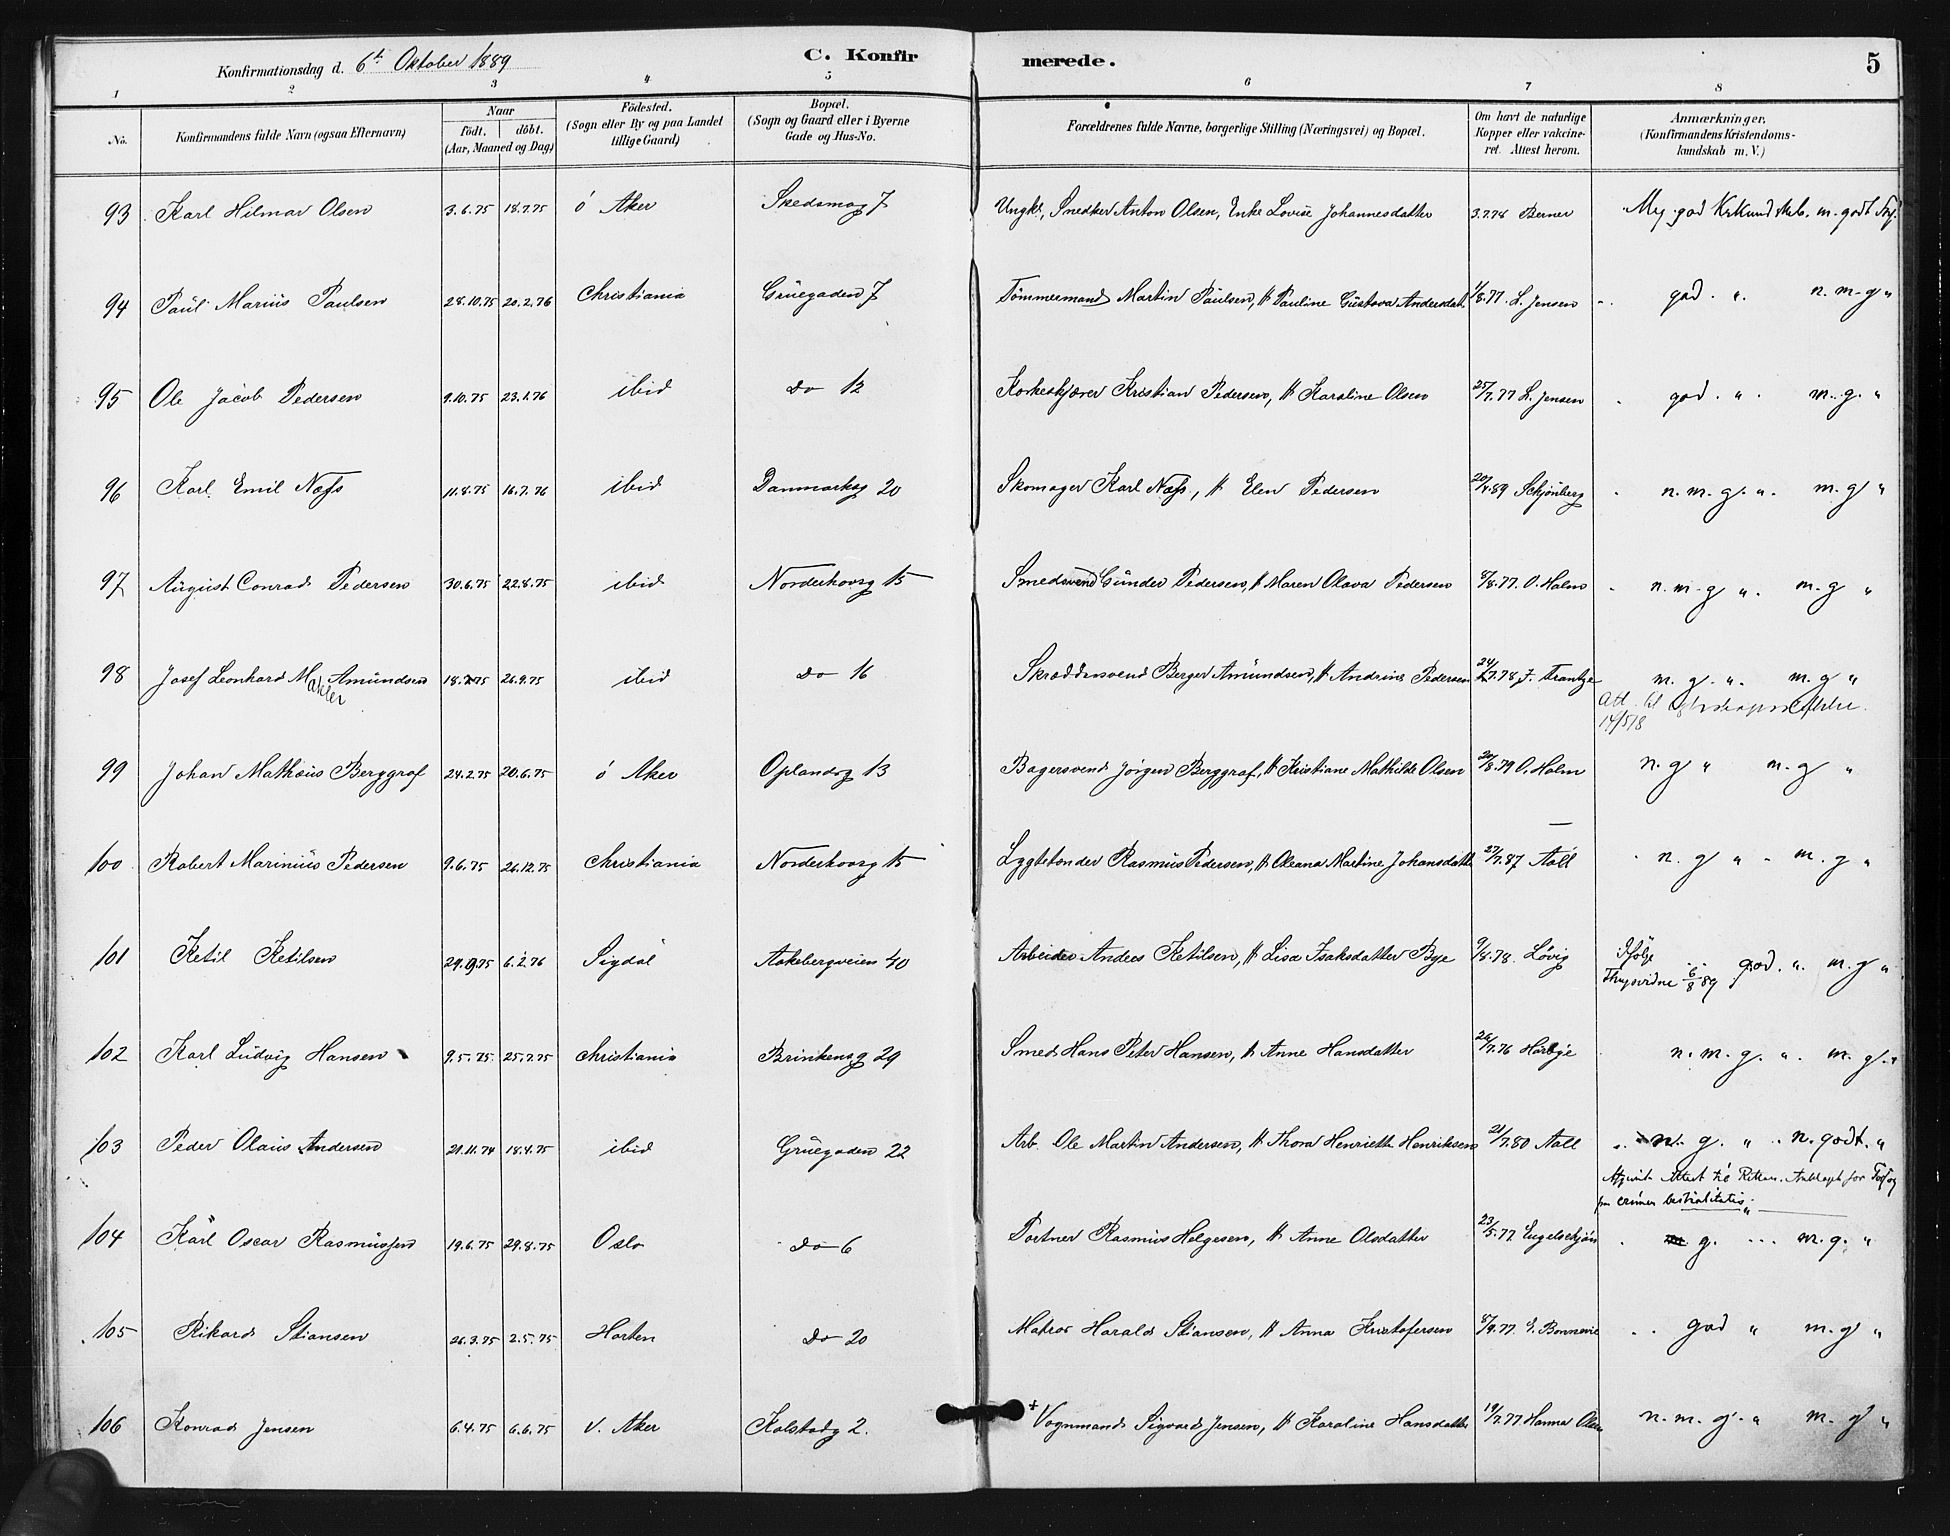 Konfirmationsdag d. 6te Oktober 1889 C. Konfir merede. 5
1 2 3 4 5 6 7 8
No. Konfirmandens fulde Navn (ogsaa Efternavn) Naar födt. döbt. (Aar, Maaned og Dag) Födested. (Sogn eller By og paa Landet tillige Gaard) Bopæl. (Sogn og Gaard eller i Byerne Gade og Hus-No. Forældrenes fulde Navne, borgerlige Stilling (Næringsvei) og Bopæl. Om havt de naturlige Kopper eller vakcineret. Attest herom. Anmærkninger. (Konfirmandens Kristendomskundskab m. V.)
93 Karl Hilmar Olsen 3.6.75 18.7.75 ö Aker Skedsmog 7 Ungk., Snedker Anton Olsen, Enke Lovise Johannesdatter 3.7.78 Berner Meg. god Kr.kundskab. m. godt
94 Paul Marius Paulsen 28.10.75 20.2.76 Christiania Grüegaden 7 Tömmermand Martin Paulsen, H Pauline Gustava Andersdatt 1/8.77. L. Jensen god. ". n. m. g "
95 Ole Jacob Pedersen 9.10.75 23.1.76 ibid do 12 Korkeskjærer Kristian Pedersen, H Karoline Olsen 25/7.77 L. Jensen god. ". m. g. "
96 Karl Emil Næss 11.8.75 16.7.76 ibid Danmarksg 20 Skomager Karl Næss, H Elen Pedersen 20/4.89 Schjönberg n. m. g. ". m. g "
97 August Conrad Pedersen 30.6.75 22.8.75 ibid Norderhovsg 15 Smedsvend Gunder Pedersen, H Maren Olava Pedersen 8/8.77. O. Holm n. m. g ". m. g "
98 Josef Leonhard M Amundsen 18.7.75 26.9.75 ibid do 16 Skræddersvend Berger Amundsen, H Andrine Pedersen 24/7.78 J. Frantze m. g. ". m. g "
14/5 18
99 Johan Mathæus Berggraf 24.2.75 20.6.75 ö Aker Oplandsg 13 Bagersvend Jörgen Berggraf, H Kristiane Mathilde Olsen 20/8.79 O. Holm n. g " m. g "
100 Robert Marinius Pedersen 9.6.75 26.12.75 Christiania Norderhovsg 15 Lygtetænder Rasmus Pedersen, H Oleana Martine Johansdatt 27/7.87 Aall n. g " m. g "
101 Ketil Ketilsen 29.9.75 6.2.76 Sigdal Aakebergveien 40 Arbeider Anders Ketilsen, H Lisa Isaksdatter Bye 9/8.78. Lövig Ifölge 6/8 89 god. ". m. g "
102 Karl Ludvig Hansen 9.5.75. 25.7.75 Christiania Brinkensg 29 Smed Hans Peter Hansen, H Anne Hansdatter 26/7.76 Hörbye n. m. g. ". m. g. "
103 Peder Olaus Andersen 21.11.74 18.4.75 ibid Grüegaden 22 Arb. Ole Martin Andersen, H Thora Henriette Henriksen 21/7.80 Aall n. g. " n. godt. "
Afgivet Attest til for crimen bestialitatis
104 Karl Oscar Rasmussen 19.6.75 29.8.75 Oslo do 6 Portner Rasmus Helgesen, H Anne Olsdatter 23/5.77 Engelschjön g. m. g. "
105 Rikard Stiansen 26.3.75 2.5.75 Horten do 20 Matros Harald Stiansen, H Anna Kristofersen 8/9.77. E. Bonnevie god " m. g "
106 Konrad Jensen 6.4.75 6.6.75 V. Aker Kolstadg 2. Vognmand Sigvard Jensen, H Karoline Hansdatter 19/7.77 Hanna Olsen n. m. g. " m. g "